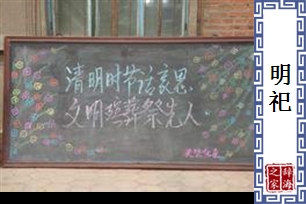 清明时节话哀思
文明殡葬祭先人
明
祀
辞海
之家